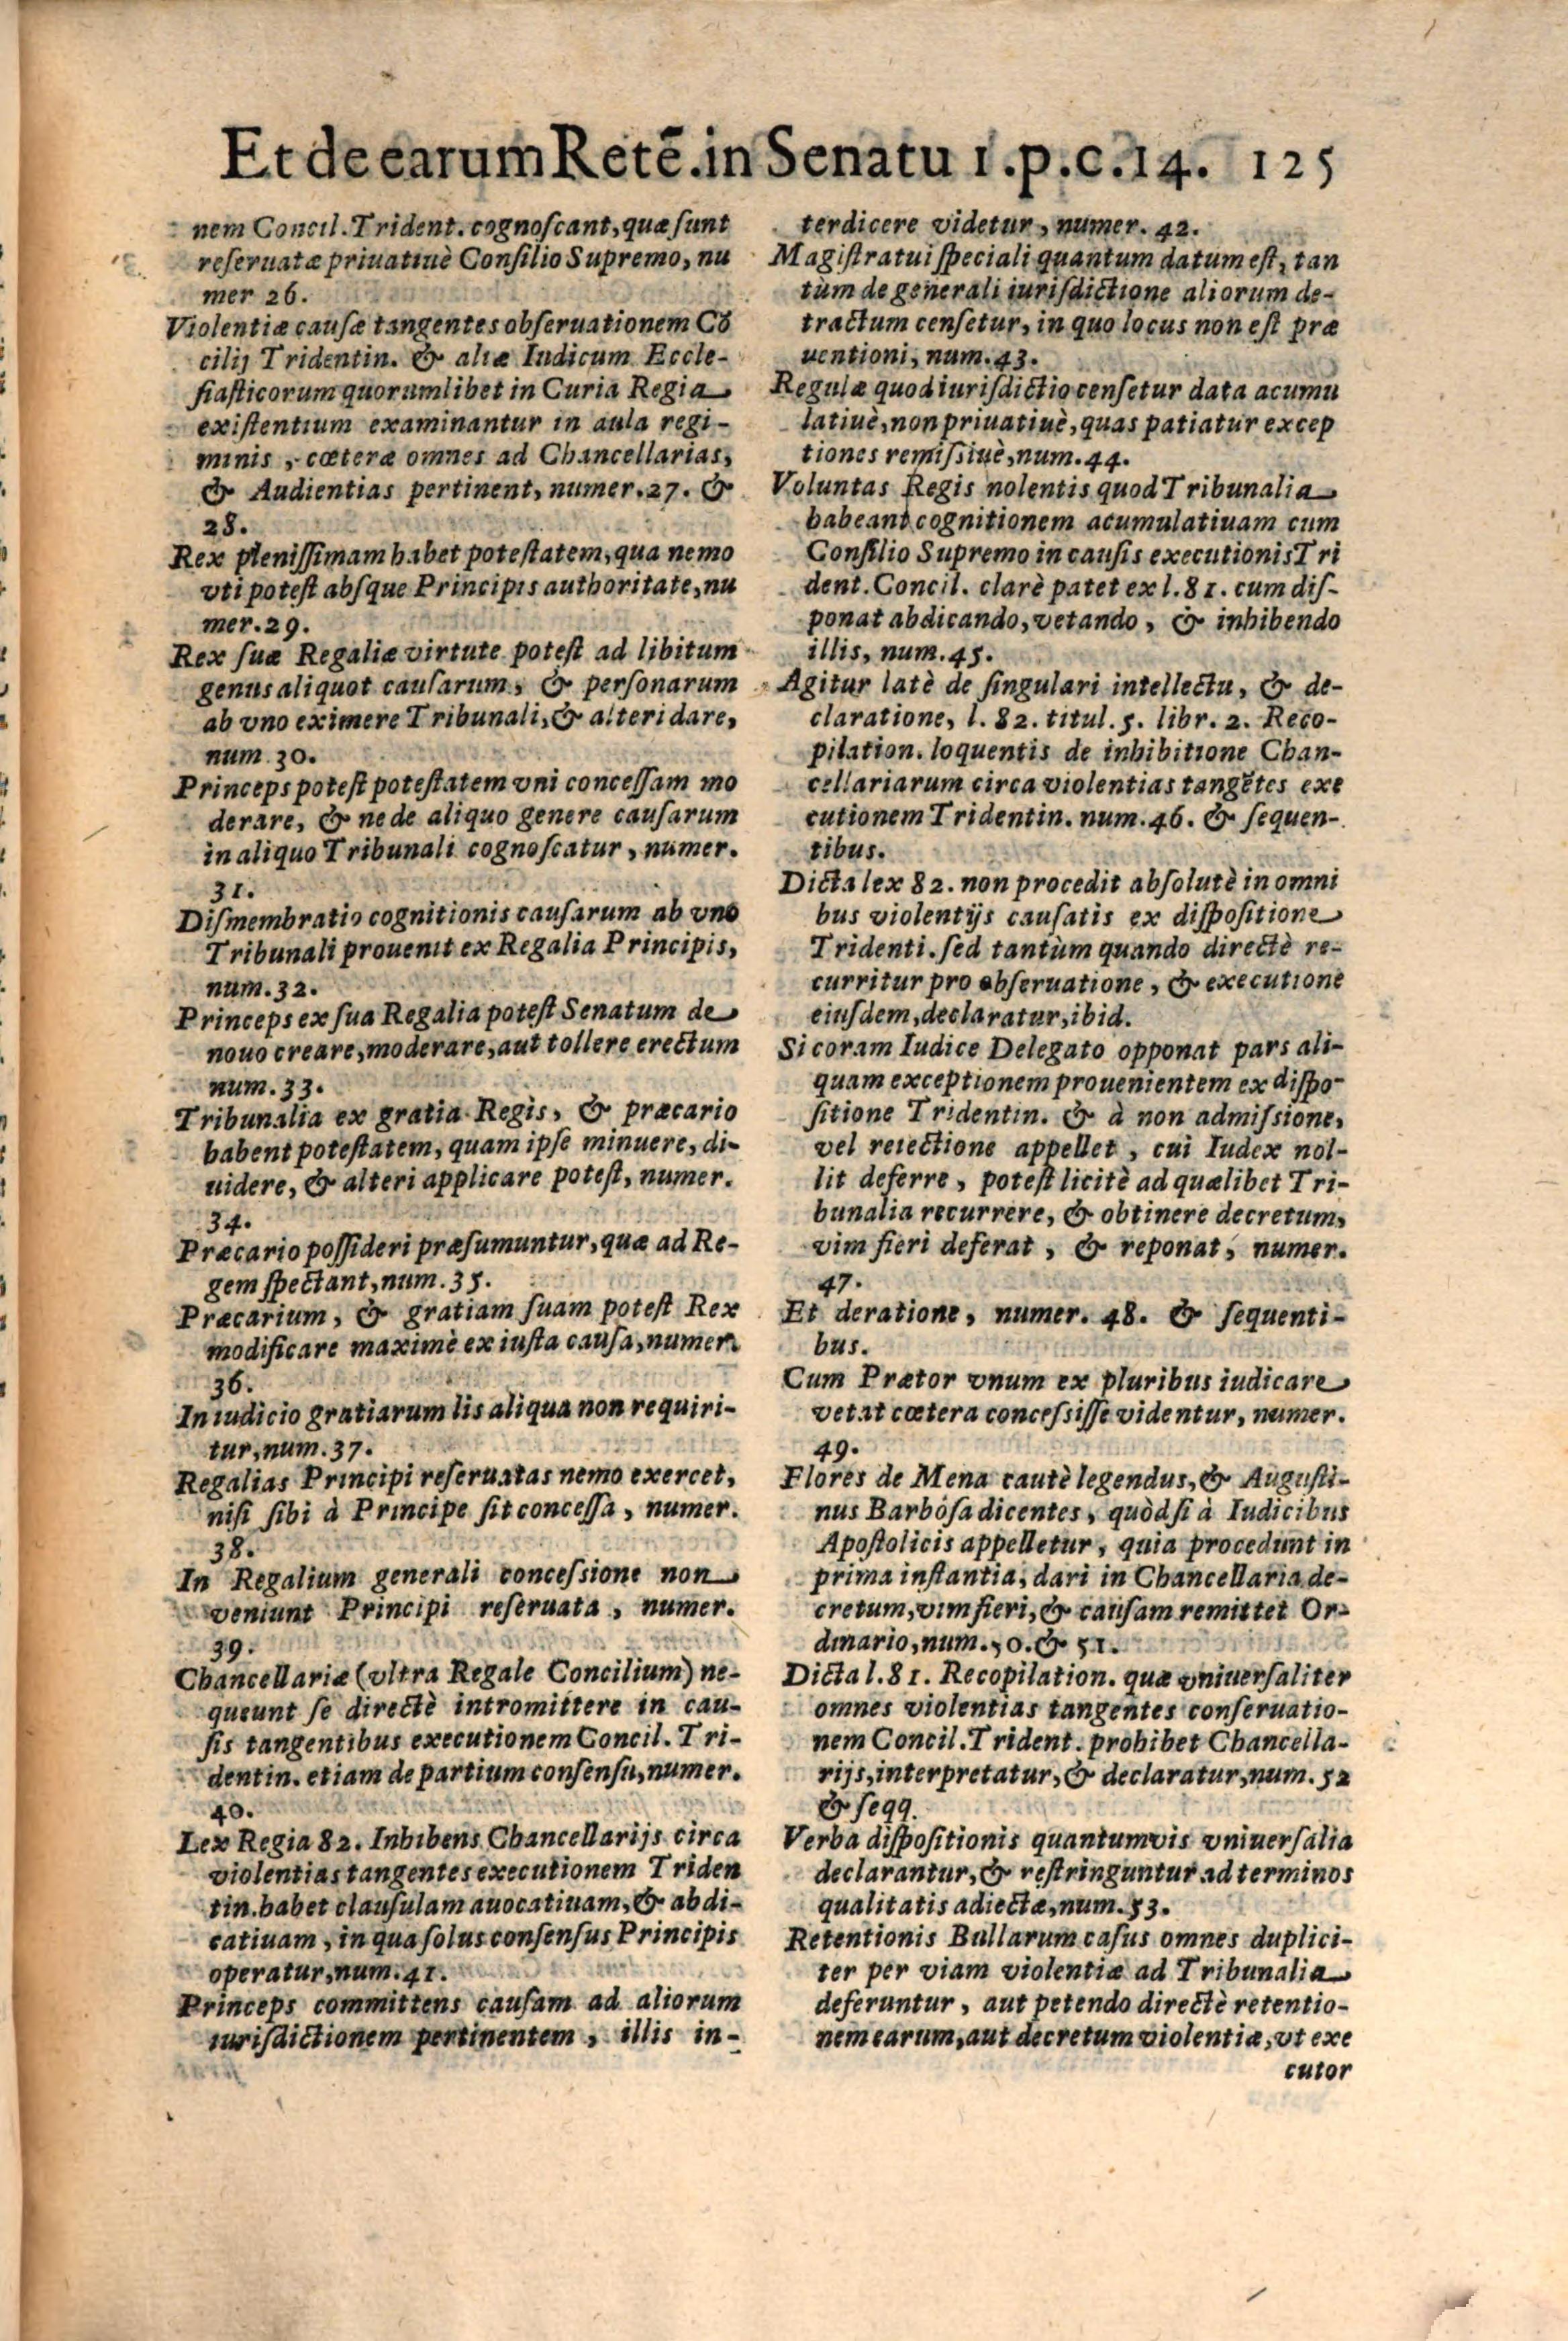 Et de earum Retē. in Senatu 1.p.c.14. 125
nem Concil. Trident. cognoscant, quæ sunt
reseruatæ priuatiuè Consilio Supremo, nu
mer 26.
Violentiæ causæ tangentes obseruationem Cō
cilij Tridentin. & aliæ Iudicum Eccle-
siasticorum quorumlibet in Curia Regia
existentium examinantur in aula regi-
minis, cœteræ omnes ad Chancellarias,
& Audientias pertinent, numer. 27. &
28.
Rex plenissimam habet potestatem, qua nemo
vti potest absque Principis authoritate, nu
mer. 29.
Rex suæ Regaliæ virtute potest ad libitum
genus aliquot causarum, & personarum
ab vno eximere Tribunali, & alteri dare,
num. 30.
Princeps potest potestatem vni concessam mo
derare, & ne de aliquo genere causarum
in aliquo Tribunali cognoscatur, numer.
31.
Dismembratio cognitionis causarum ab vno
Tribunali prouenit ex Regalia Principis,
num. 32.
Princeps ex sua Regalia potest Senatum de
nouo creare, moderare, aut tollere erectum
num. 33.
Tribunalia ex gratia Regis, & præcario
habent potestatem, quam ipse minuere, di-
uidere, & alteri applicare potest, numer.
34.
Præcario possideri præsumuntur, quæ ad Re-
gem spectant, num. 35.
Præcarium, & gratiam suam potest Rex
modificare maximè ex iusta causa, numer.
36.
In iudicio gratiarum lis aliqua non requiri-
tur, num. 37.
Regalias Principi reseruatas nemo exercet,
nisi sibi à Principe sit concessa, numer.
38.
In Regalium generali concessione non
veniunt Principi reseruata, numer.
39.
Chancellariæ (vltra Regale Concilium) ne-
queunt se directè intromittere in cau-
sis tangentibus executionem Concil. Tri-
dentin. etiam de partium consensu, numer.
40.
Lex Regia 82. Inhibens Chancellarijs circa
violentias tangentes executionem Triden
tin. habet clausulam auocatiuam, & abdi-
catiuam, in qua solus consensus Principis
operatur, num. 41.
Princeps committens causam ad aliorum
iurisdictionem pertinentem, illis in-
terdicere videtur, numer. 42.
Magistratui speciali quantum datum est, tan
tùm de generali iurisdictione aliorum de-
tractum censetur, in quo locus non est præ
uentioni, num. 43.
Regulæ quod iurisdictio censetur data acumu
latiuè, non priuatiuè, quas patiatur excep
tiones remissiuè, num. 44.
Voluntas Regis nolentis quod Tribunalia
habeant cognitionem acumulatiuam cum
Consilio Supremo in causis executionis Tri
dent. Concil. clarè patet ex l. 81. cum dis-
ponat abdicando, vetando, & inhibendo
illis, num. 45.
Agitur latè de singulari intellectu, & de-
claratione, l. 82. titul. 5. libr. 2. Reco-
pilation. loquentis de inhibitione Chan-
cellariarum circa violentias tangētes exe
cutionem Tridentin. num. 46. & sequen-
tibus.
Dicta lex 82. non procedit absolutè in omni
bus violentijs causatis ex dispositione
Tridenti. sed tantùm quando directè re-
curritur pro obseruatione, & executione
eiusdem, declaratur, ibid.
Si coram Iudice Delegato opponat pars ali-
quam exceptionem prouenientem ex dispo-
sitione Tridentin. & à non admissione,
vel reiectione appellet, cui Iudex nol-
lit deferre, potest licitè ad quælibet Tri-
bunalia recurrere, & obtinere decretum,
vim fieri deferat, & reponat, numer.
47.
Et de ratione, numer. 48. & sequenti-
bus.
Cum Prætor vnum ex pluribus iudicare
vetat cœtera concessisse videntur, numer.
49.
Flores de Mena cautè legendus, & Augusti-
nus Barbosa dicentes, quòd si à Iudicibus
Apostolicis appelletur, quia procedunt in
prima instantia, dari in Chancellaria de-
cretum, vim fieri, & causam remittet Or-
dinario, num. 50. & 51.
Dicta l. 81. Recopilation. quæ vniuersaliter
omnes violentias tangentes conseruatio-
nem Concil. Trident. prohibet Chancella-
rijs, interpretatur, & declaratur, num. 52
& seqq.
Verba dispositionis quantumvis vniuersalia
declarantur, & restringuntur ad terminos
qualitatis adiectæ, num. 53.
Retentionis Bullarum casus omnes duplici-
ter per viam violentiæ ad Tribunalia
deferuntur, aut petendo directè retentio-
nem earum, aut decretum violentiæ, vt exe
cutor